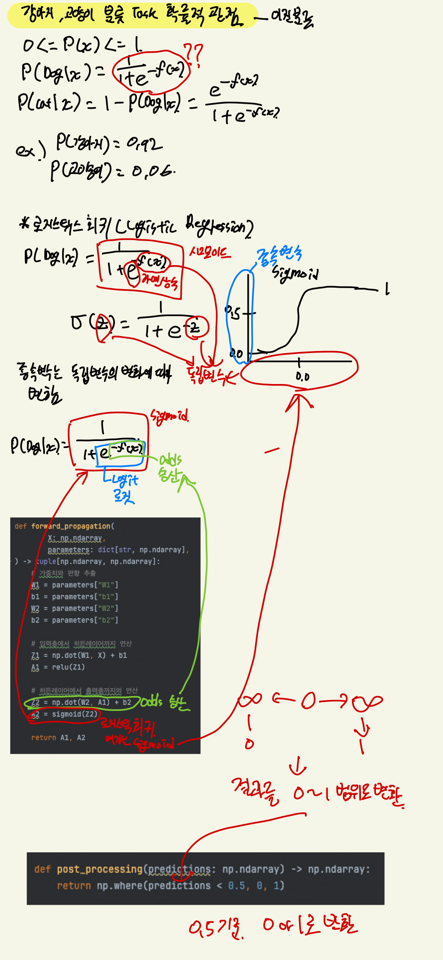 강아지, 고양이 분류 Task 확률적 관점 — 이진분류
0 <= P(x) <= 1
P(Dog|x) = 1/(1+e^-f(x)) ??
P(cat|x) = 1 - P(Dog|x) = e^-f(x)/(1+e^-f(x))
ex) P(강아지) = 0.92
P(고양이) = 0.06
* 로지스틱스 회귀 (Logistic Regression)
P(Dog|x) = 1/(1+e^f(x)) 시그모이드
자연상수
σ(z) = 1/(1+e^-z)
독립변수
종속변수
sigmoid
1
0.5
0.0
0.0
종속변수는 독립변수의 변화에 따라
변함
P(Dog|x) = 1/(1+e^-f(x)) sigmoid
odds
승산
Logit
로짓
def forward_propagation(
X: np.ndarray,
parameters: dict[str, np.ndarray],
) -> tuple[np.ndarray, np.ndarray]:
# 가중치와 편향 추출
W1 = parameters["W1"]
b1 = parameters["b1"]
W2 = parameters["W2"]
b2 = parameters["b2"]
# 입력층에서 히든레이어까지 연산
Z1 = np.dot(W1, X) + b1
A1 = relu(Z1)
# 히든레이어에서 출력층까지의 연산
Z2 = np.dot(W2, A1) + b2 odds 승산
A2 = sigmoid(Z2) 로지스틱 회귀
sigmoid
return A1, A2
∞ ← 0 → ∞
0 1
결과를 0~1 범위로 변환
def post_processing(predictions: np.ndarray) -> np.ndarray:
return np.where(predictions < 0.5, 0, 1)
0.5기준 0 or 1로 변환